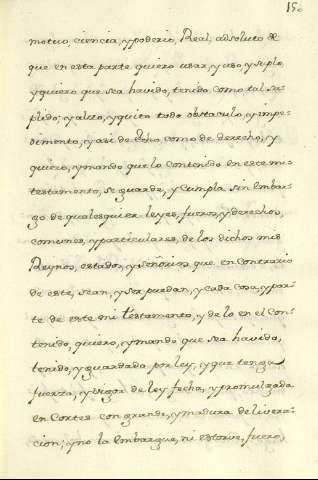 15.
motuo, ciencia, y poderio, Real, absoluto de
que en esta parte quiero usar, y uso, y suplo,
y quiero que sea havido, tenido como tal su-
plido; y alzo, y quito todo obstaculo, y impe-
dimento, y asi de echo como de derecho, y
quiero, y mando que lo contenido en este mi
testamento, se guarde, y cumpla sin embar-
go de qualesquier leyes, fueros, y derechos,
comunes, y particulares, de los dichos mis
Reynos, estados, y señorios que en contrario
de este, sean, y ser puedan, y cada cosa, y par-
te de este mi testamento, y de lo en el con-
tenido, quiero, y mando que sea havido,
tenido, y guardado por ley, y que tenga
fuerza, y vigor de ley fecha, y promulgada
en Cortes con grande, y madura delivera-
cion; y no la embargue, ni estorve, fuero,